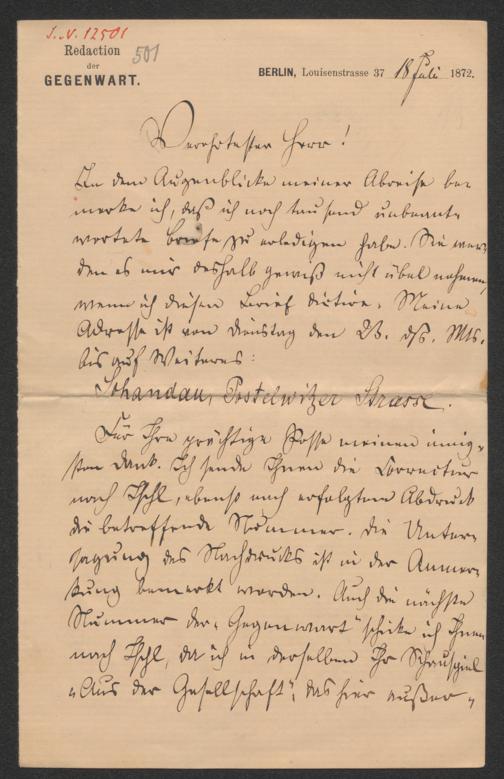 I. N. 12501
501
Redaction
der
GEGENWART.
BERLIN, Louisenstrasse 37 18 Juli 1872.
Verehrtester Herr!
In dem Augenblicke meiner Abreise be-
merke ich, daß ich noch tausend unbeant-
wortete Briefe zu erledigen habe. Sie wer-
den es mir deshalb gewiß nicht übel nehmen,
wenn ich diesen Brief dictire. Meine
Adresse ist von Dienstag den 23. dss. Mts.
bis auf Weiteres:
Schandau, Postelwitzer Strasse.
Für Ihre prächtige Posse meinen innig-
sten Dank. Ich sende Ihnen die Correctur
nach Ischl, ebenso nach erfolgtem Abdruck
die betreffende Nummer. Die Unter-
sagung des Nachdrucks ist in der Anmer-
kung bemerkt worden. Auch die nächste
Nummer der „Gegenwart" schicke ich Ihnen
nach Ischl, da ich in derselben Ihr Schauspiel
„Aus der Gesellschaft", das hier außer-